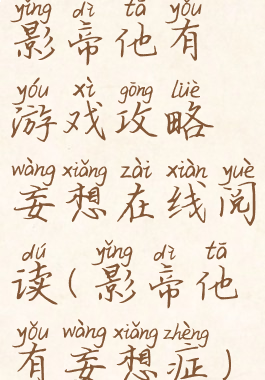 yǐng dì tā yǒu
影帝他有
yóu xì gōng lüè
游戏攻略
wàng xiǎng zài xiàn yuè
妄想在线阅
dú yǐng dì tā
读(影帝他
yǒu wàng xiǎng zhèng
有妄想症)